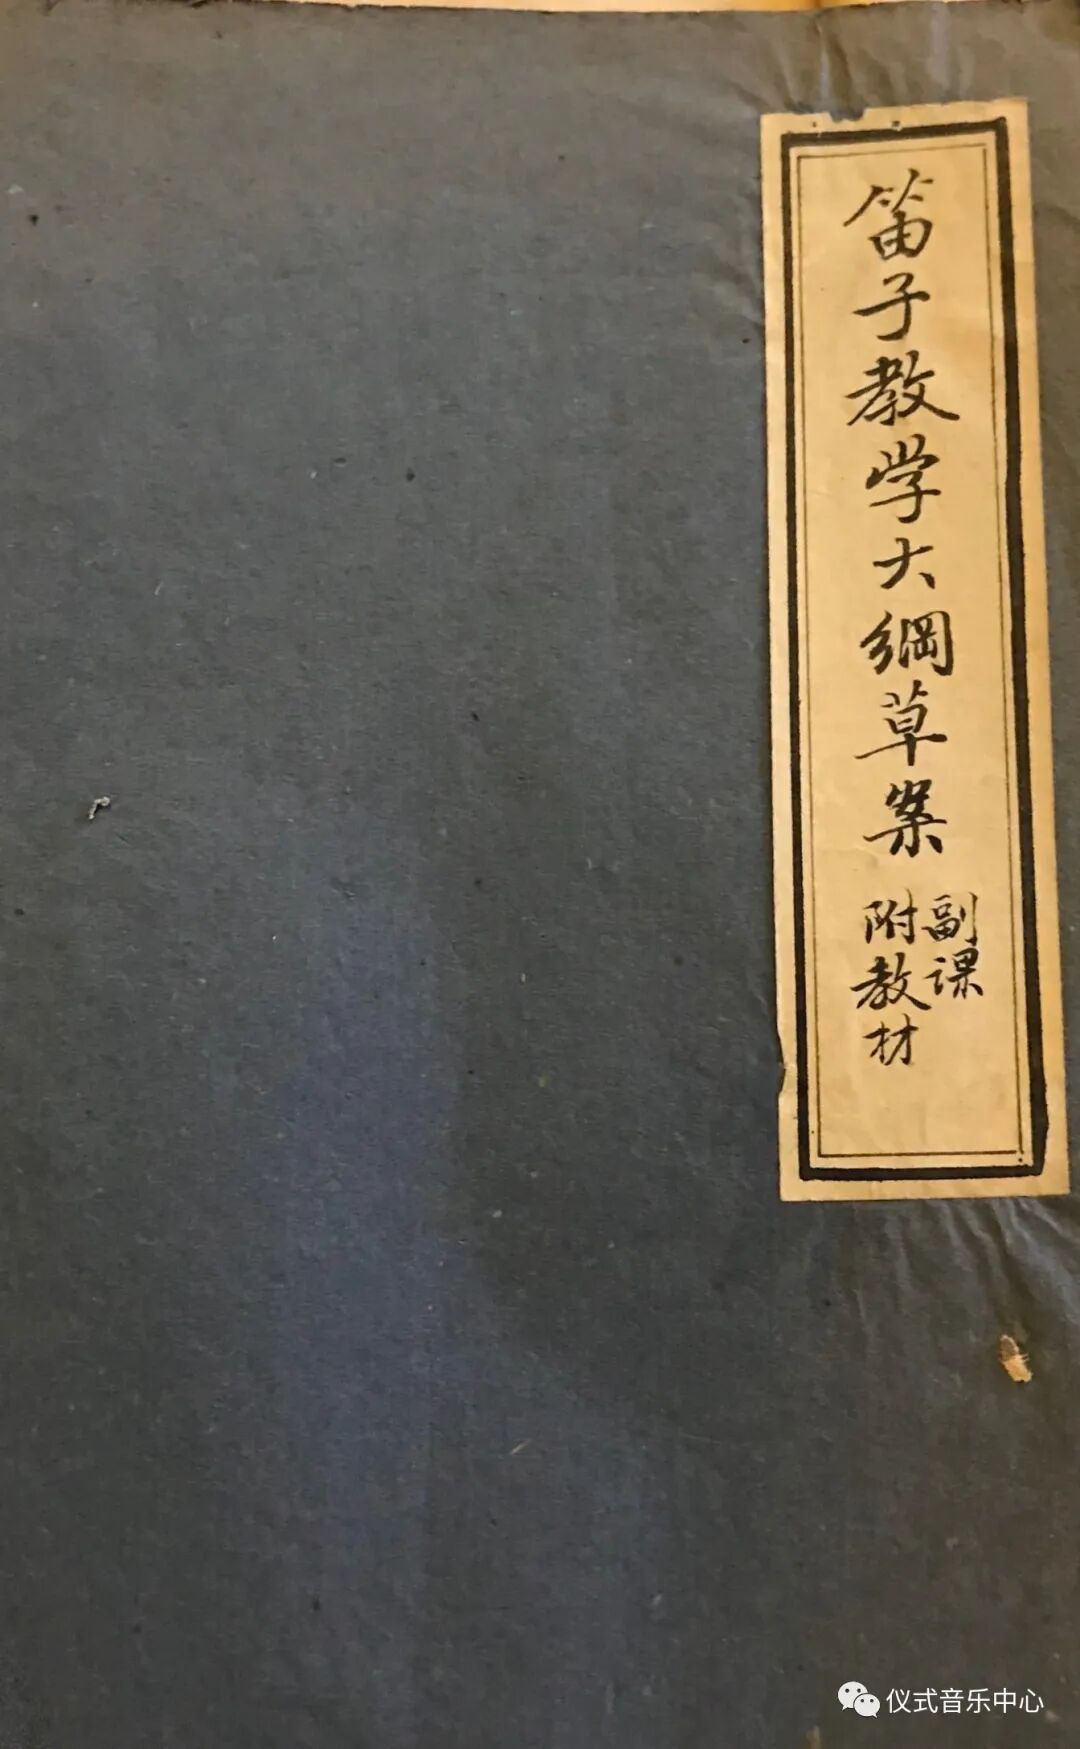 笛子教学大綱草案
副课
附教材
仪式音乐中心